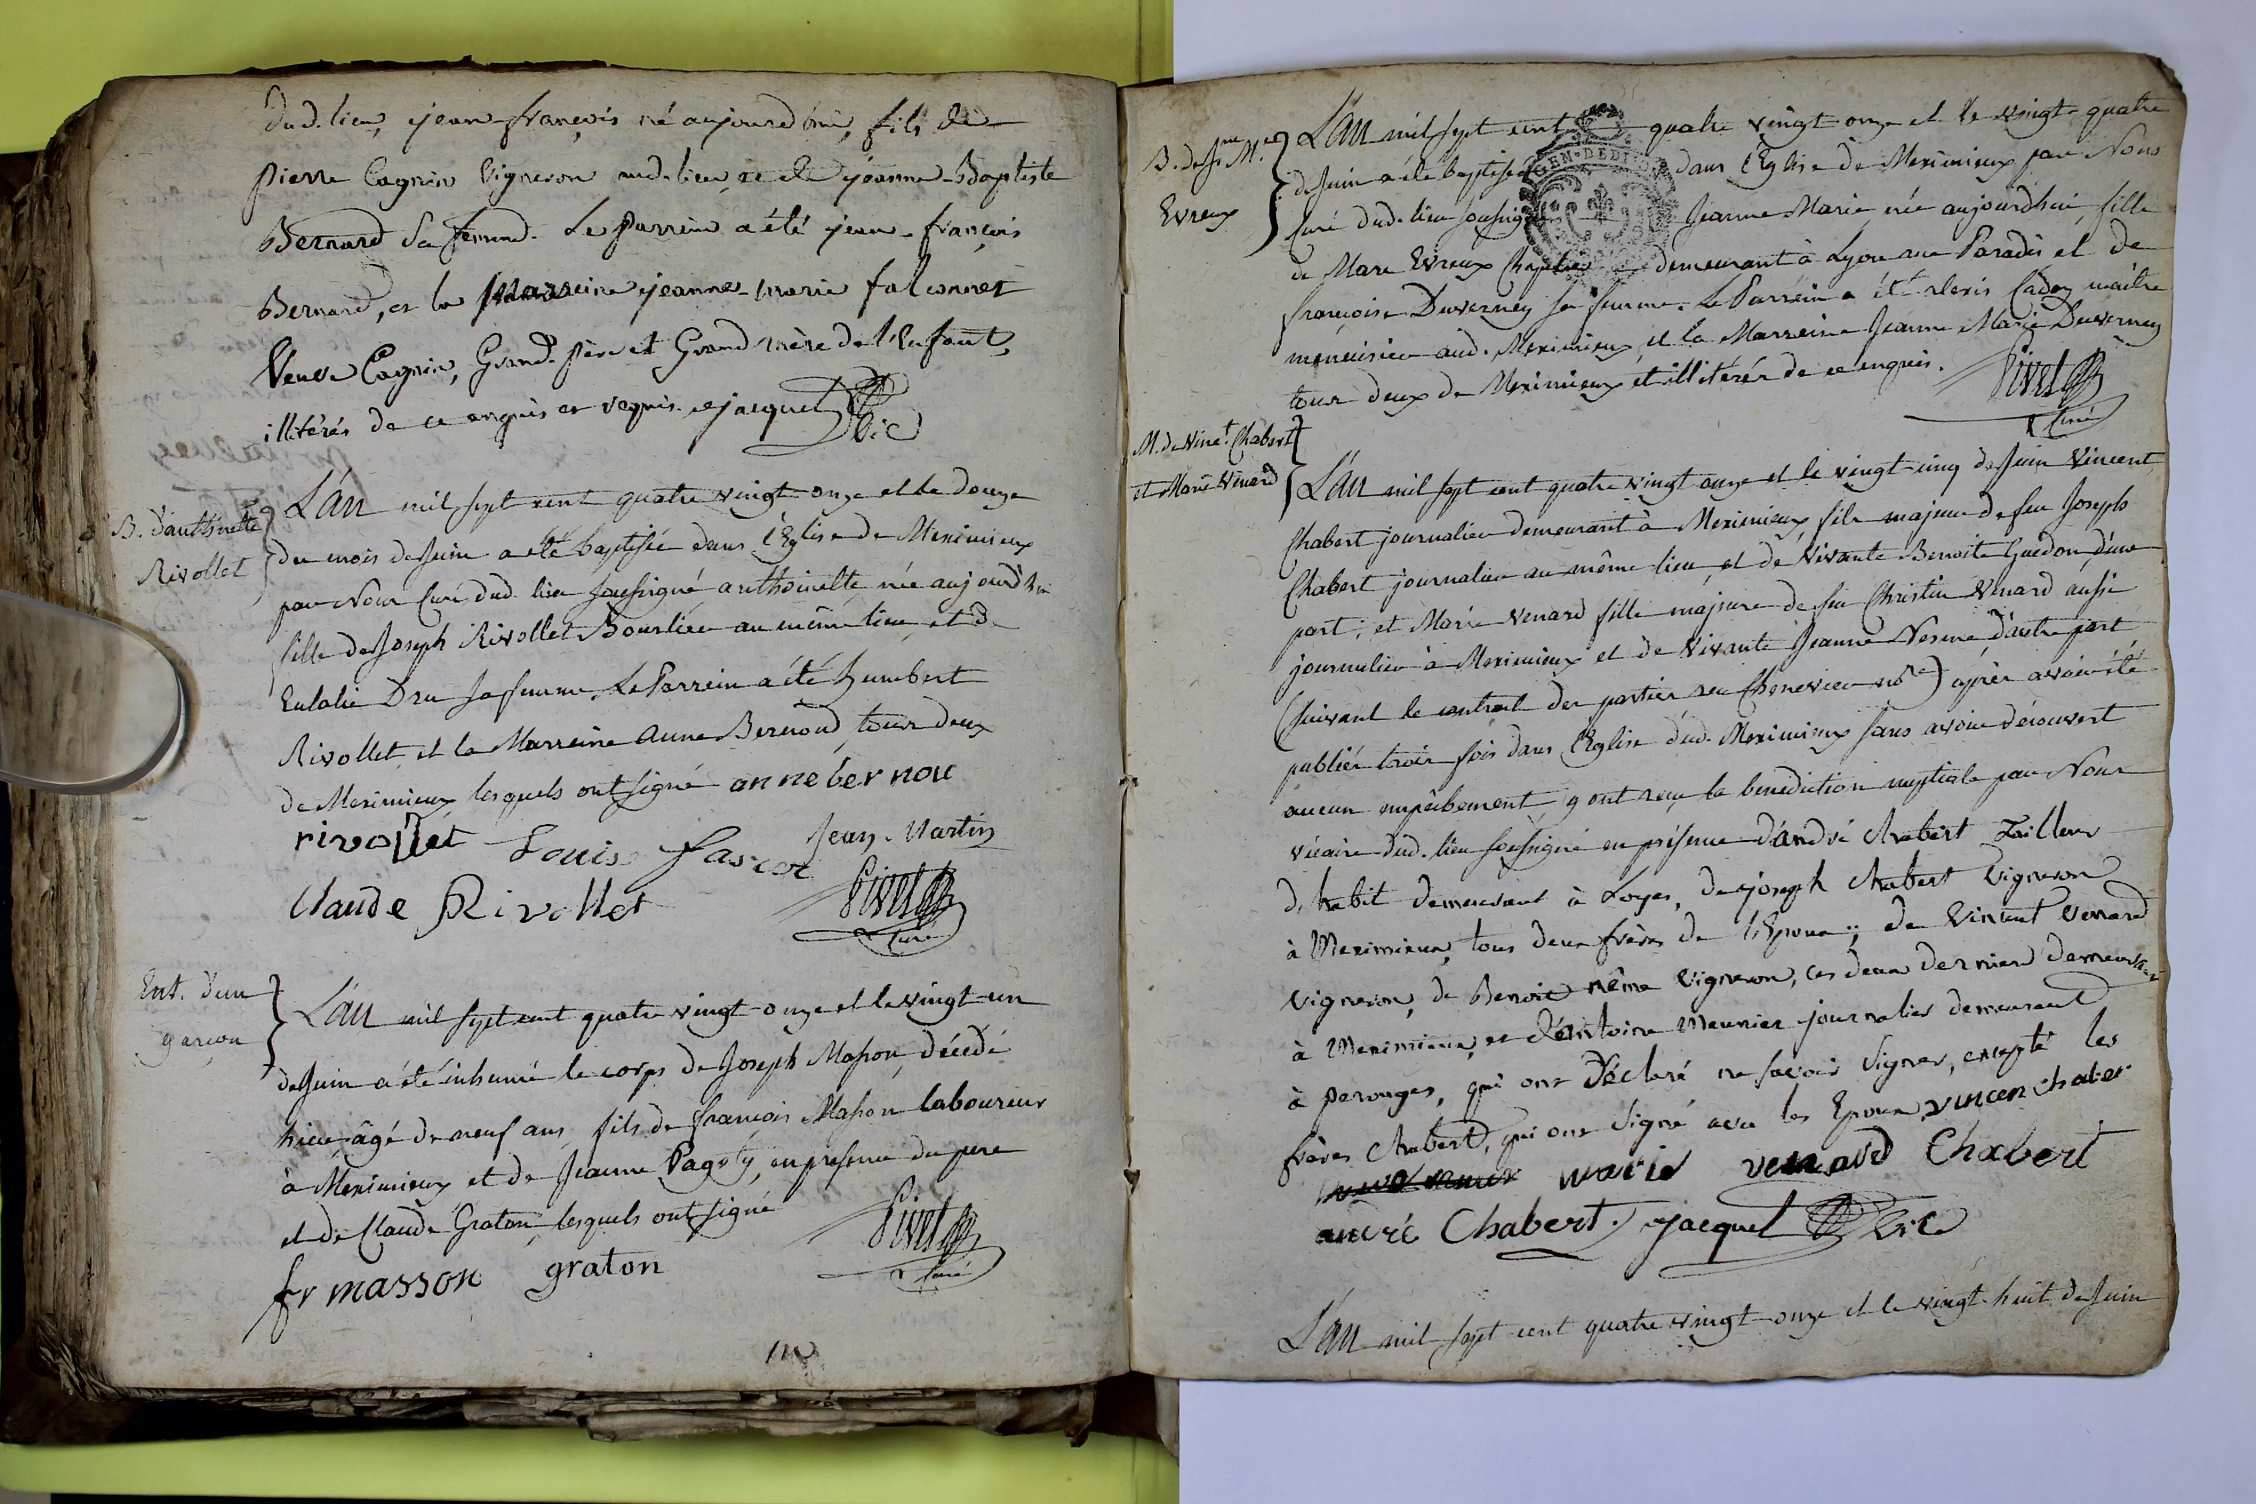 dud. lieu, jean-françois né aujourd'hui, fils de
pierre Cagnin Vigneron aud. lieu, et de jéanne-Baptiste
Bernard sa femme. Le parrein a été jean-françois
Bernard, et la Marreine jeanne-marie falconnet
Veuve Cagnin, Grand-père et Grand-mère de l'Enfant,
illitérés de ce enquis et requis. jacquet Vic
B. d'anthoinette
Rivollet
L'an mil sept cent quatre vingt-onze et le douze
du mois de Juin a été baptisée dans l'Eglise de Meximieux
par Nous Curé dud. lieu soussigné anthoinette née aujourd'hui
fille de Joseph Rivollet Bourlier au même lieu, et de
Eulalie Dru sa femme. Le Parrein a été humbert
Rivollet, et la Marreine Anne Bernoud, tous deux
de Meximieux lesquels ont signé anne bernou
rivollet Louis Jean Martin
Claude Rivollet Pivet
Curé
Ent. d'un
garcon
L'an mil sept cent quatre vingt-onze et le vingt-un
de Juin a été inhumé le corps de Joseph Masson, décédé
hier âgé de neuf ans, fils de francois Masson laboureur
à Meximieux et de Jeanne Pagoty, en présence du pere
et de Claude Graton, lesquels ont signé
fr masson graton Pivet
Curé
B. de Jne Mie
Evreux
L'An mil sept cent quatre vingt-onze et le vingt-quatre
de Juin a été baptisée dans l'Eglise de Meximieux par Nous
Curé dud. lieu soussigné Jeanne Marie née aujourdhui, fille
de Marc Evreux Chapelier demeurant à Lyon rue Paradis et de
françoise Duverney sa femme. Le Parrein a été alexis Cadoz maître
menuisier aud. Meximieux, et la Marreine Jeanne Marie Duverney
tous deux de Meximieux et illitérés de ce enquis. Pivet
Curé
M. de Vinct. Chabert
et Marie Venard
L'An mil sept cent quatre vingt onze et le vingt-cinq de Juin Vincent
Chabert journalier demeurant à Meximieux, fils majeur de feu Joseph
Chabert journalier au même lieu, et de Vivante Benoite Guedon, d'une
part; et Marie Venard fille majeure de feu Christin Venard aussi
journalier à Meximieux et de Vivante Jeanne Nesme d'autre part
(suivant le contrat des parties reçu Chenevier nre) après avoir été
publiés trois fois dans l'Eglise dud. Meximieux sans avoir découvert
aucun empêchement, y ont reçu la bénédiction nuptiale par Nous
vicaire dud. lieu soussigné en présence d'andré Chabert Tailleur
d'habit demeurant à Loyes, de joseph Chabert Vigneron
à Meximieux, tous deux frères de l'Epoux; de Vincent Venard
Vigneron, de Benoit nême Vigneron, ces deux derniers demeurant
à Meximieux, et d'Antoine Meunier journalier demeurant
à perouges, qui ont Déclaré ne savoir Signer, excepté les
frères Chabert, qui ont Signé avec les Epoux. vincen chaber
marie venard Chabert
andré Chabert. jacquet Vic
L'An mil sept cent quatre vingt-onze et le vingt-huit de Juin